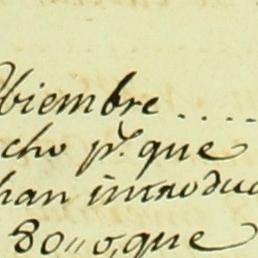 biembre .....
cho p.r que
han introduc
80,,0, que